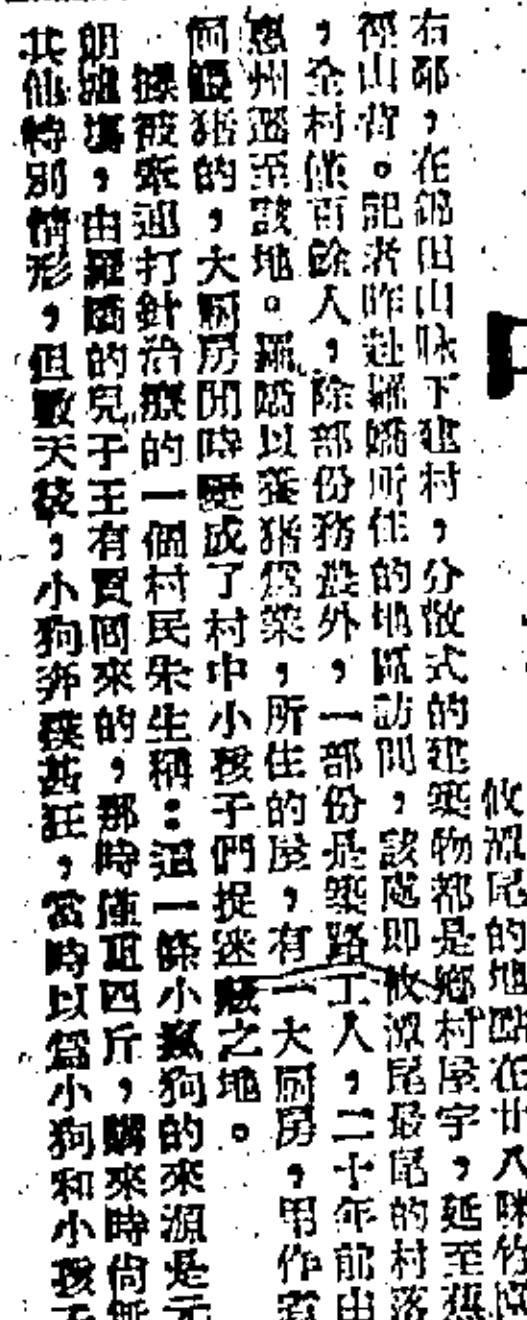 攸潭尾的地點在廿八咪竹園
右鄰，在錦田山咪下建村，分散式的建築物都是鄉村屋宇，延至蕉
徑山背。記者昨赴羅嬌所住的地區訪問，該處即攸潭尾最尾的村落
，全村僅百餘人，除部份務農外，一部份是築路工人，二十年前由
惠州遷至該地。羅嬌以養猪爲業，所住的屋，有一大厨房，用作煮
飼猪的，大厨房閒時變成了村中小孩子們捉迷藏之地。
據被牽連打針治療的一個村民朱生稱：這一條小瘋狗的來源是元
朗墟塲，由羅嬌的兒子王有買回來的，那時僅重四斤，購來時尙無
其他特別情形，但數天後，小狗奔撲甚狂，當時以爲小狗和小孩子